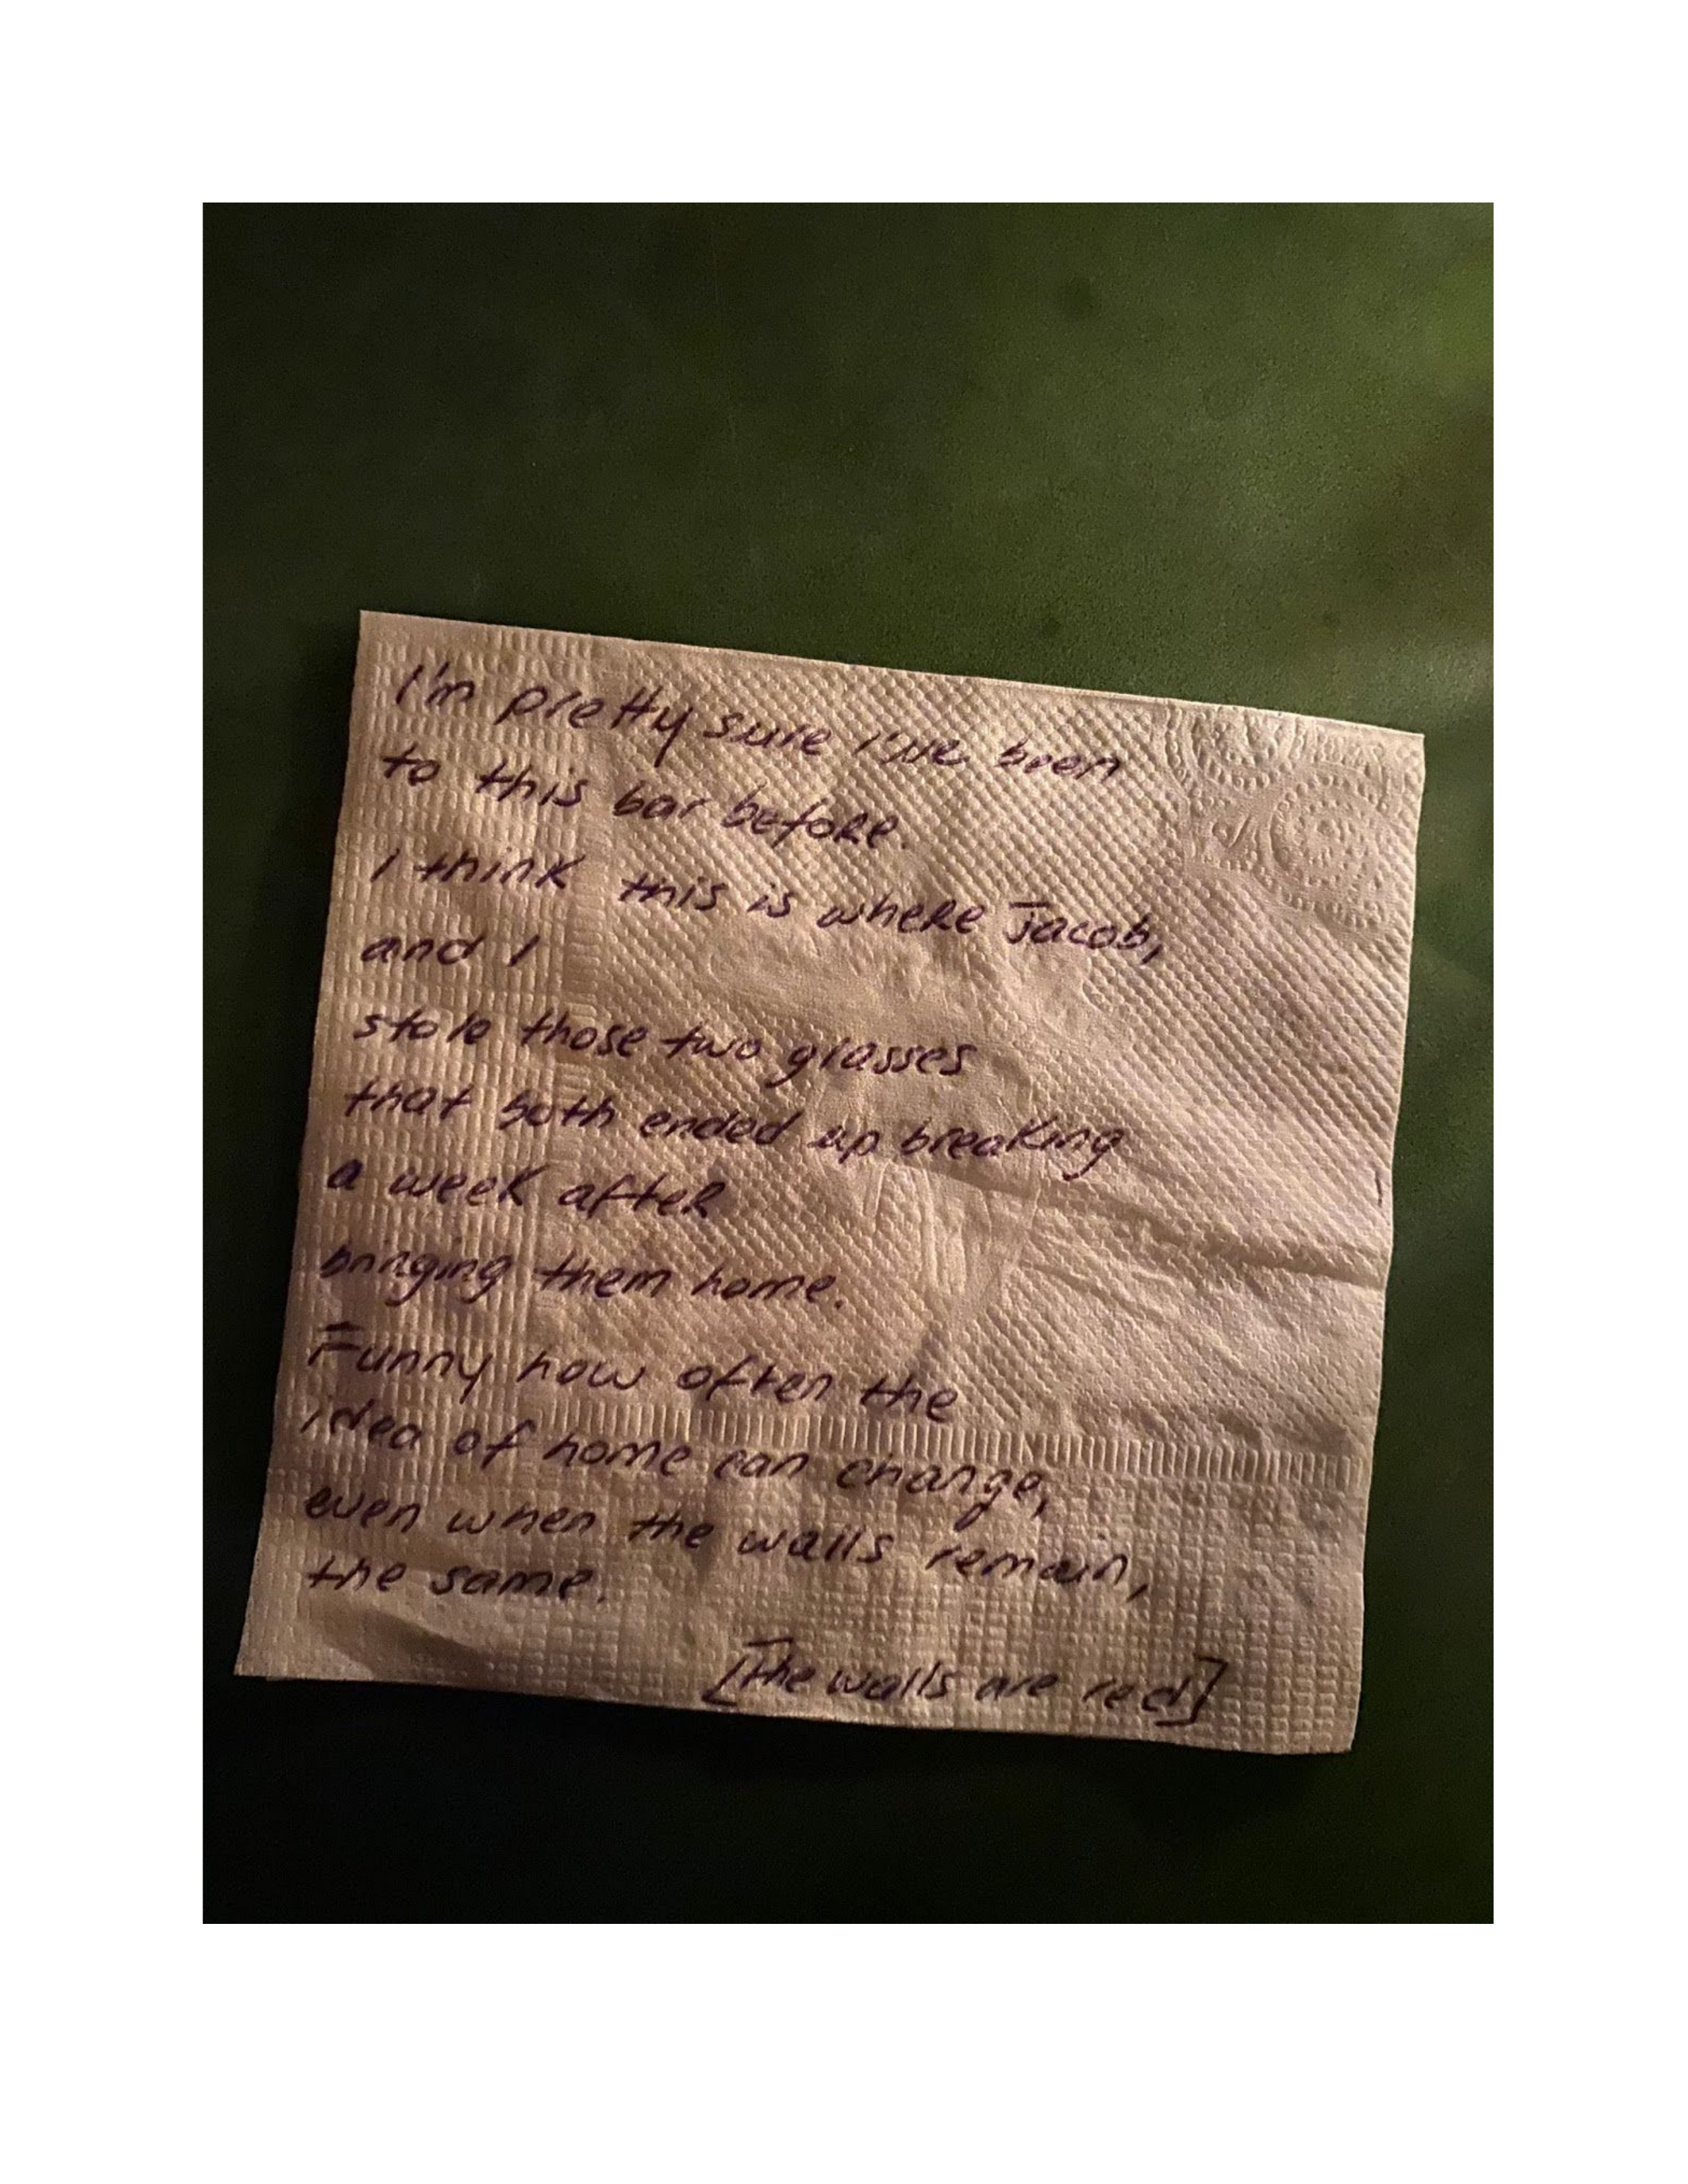 I'm pretty sure I've been
to this bar before.
I think this is where Jacob,
and I
stole those two glasses
that both ended up breaking
a week after
bringing them home.
Funny how often the
idea of home can change,
even when the walls remain,
the same.
[The walls are red]